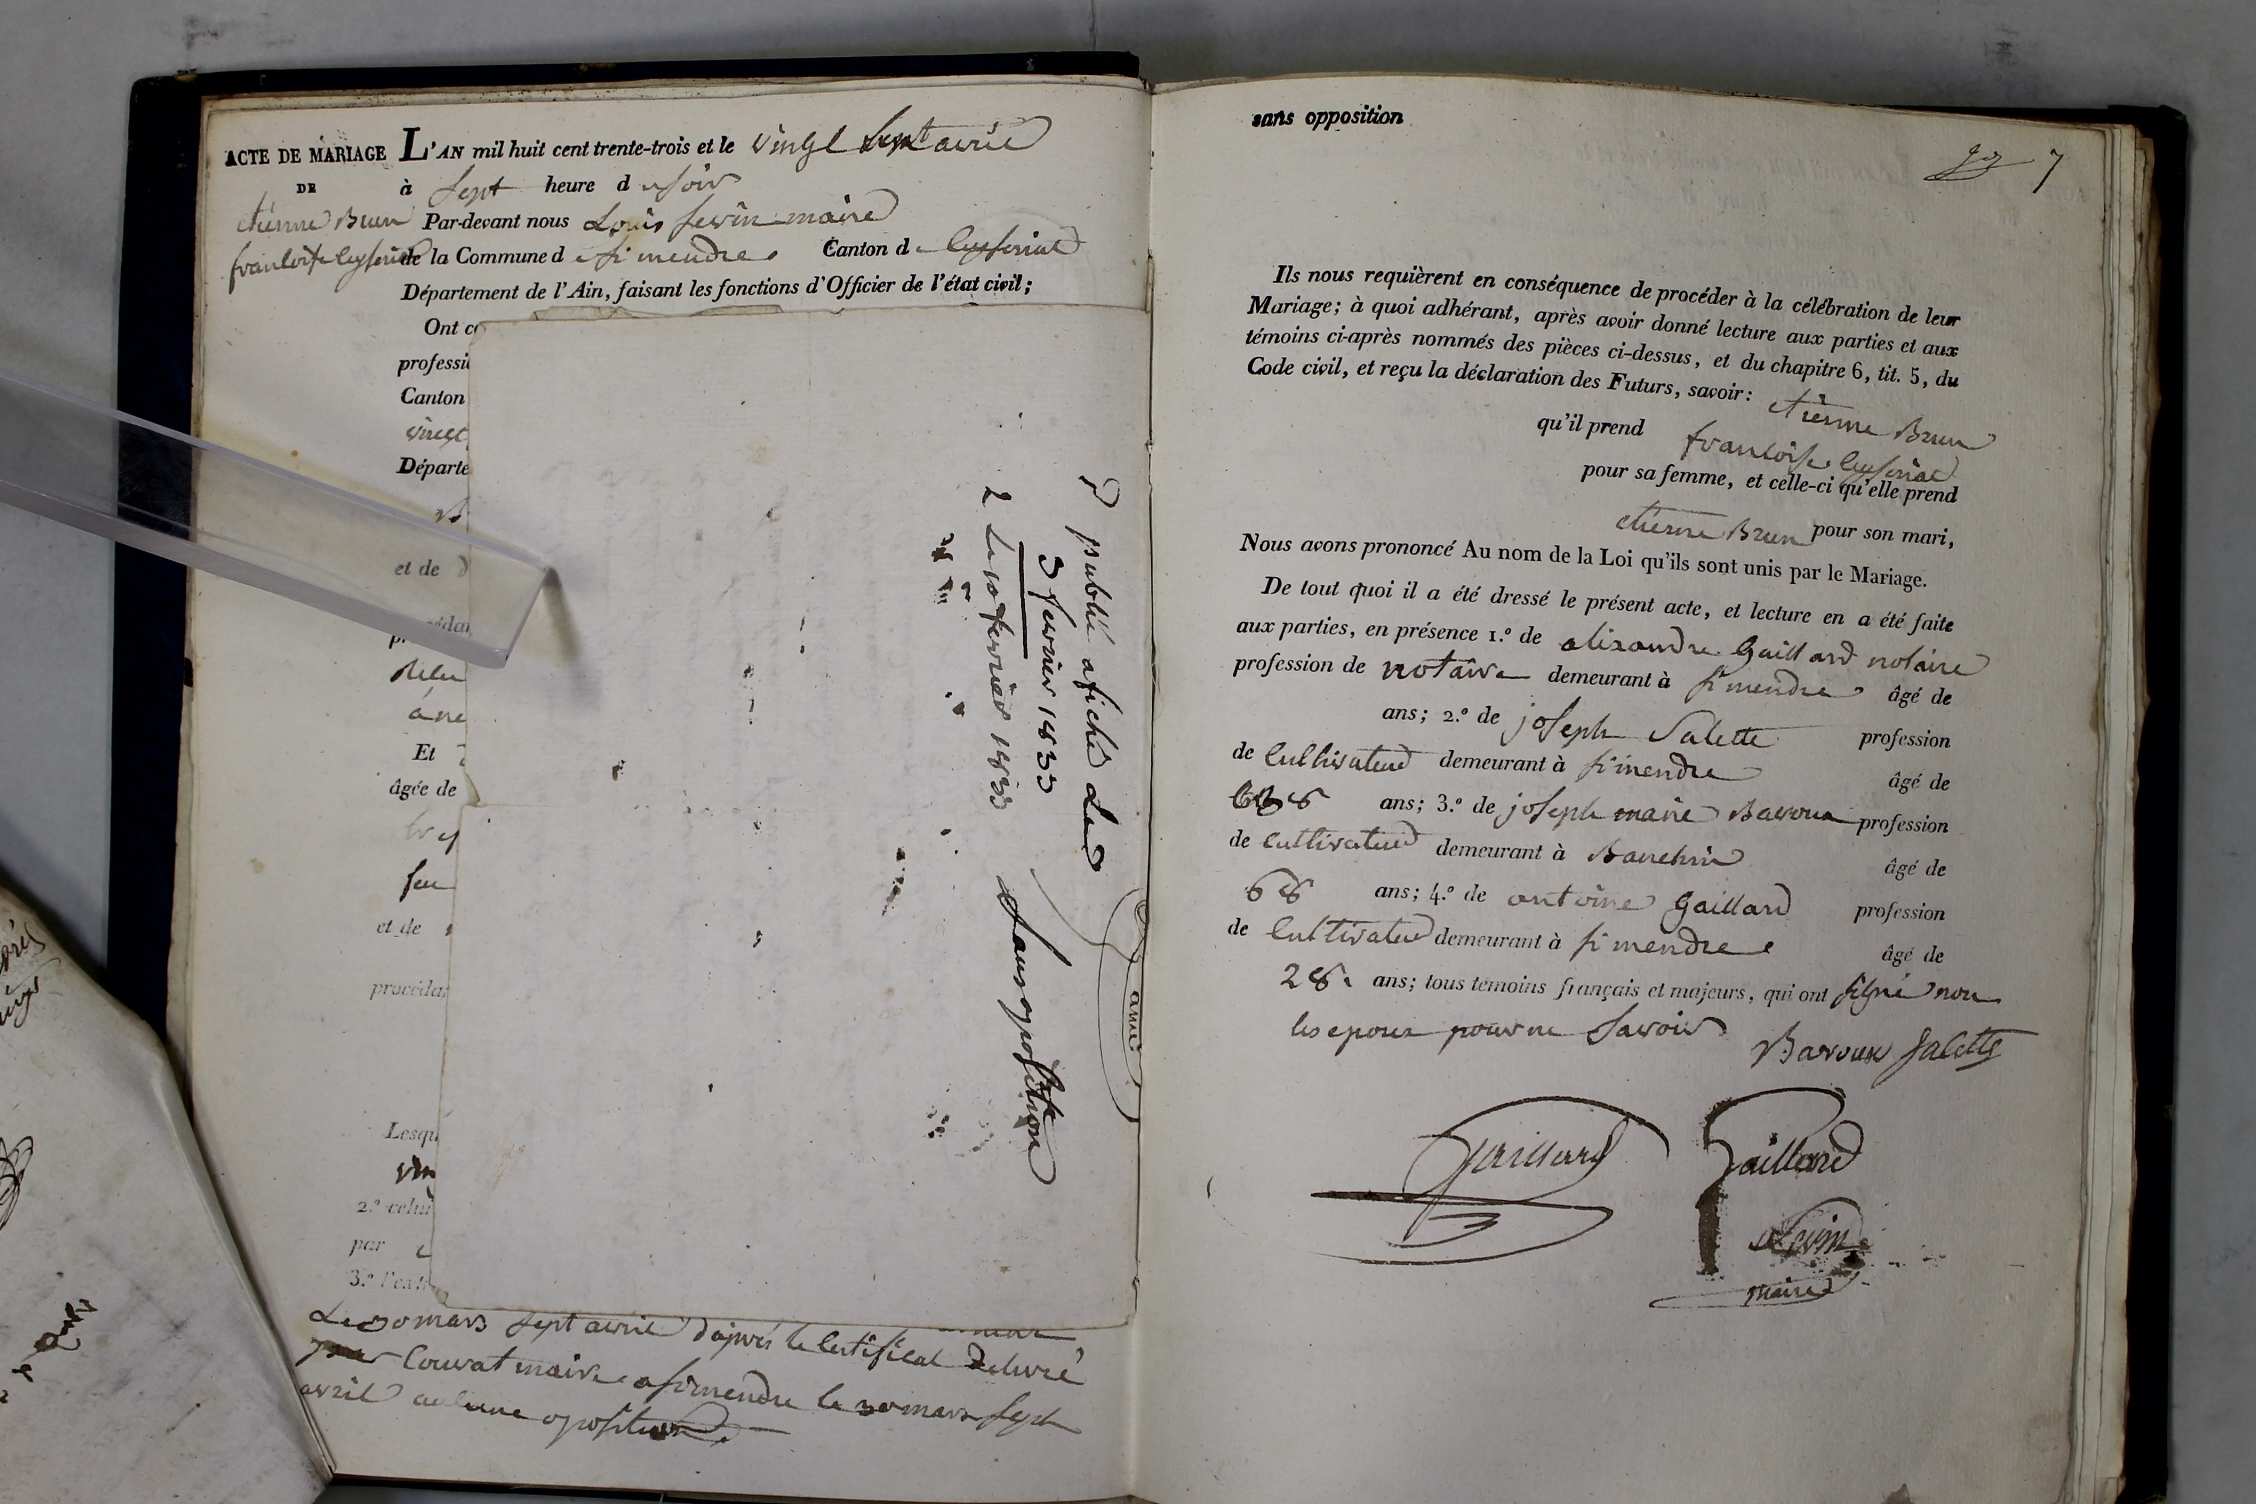 ACTE DE MARIAGE
DE
etienne Brun
francoise Ceyseriat
L'AN mil huit cent trente-trois et le vingt sept avril
à sept heure d u soir
Par-devant nous Louis sevin maire
de la Commune d e simendre Canton d e Ceyseriat
Département de l'Ain, faisant les fonctions d'Officier de l'état civil;
Ont co
professi
Canton
vingt
Départe
et de
à ne
Et
âgée de
feu
et de
procédan
Lesqu
2.° celui
par
3.° l'extr
publié afiché Le
3 fevrier 1833
2 Le 10 fevrier 1833 sans oposition
Le 30 mars sept avril d'après le certificat delivré
par Couvat maire a simendre le 30 mars sept
avril aucune oposition
sans opposition
7
Ils nous requièrent en conséquence de procéder à la célébration de leur
Mariage; à quoi adhérant, après avoir donné lecture aux parties et aux
témoins ci-après nommés des pièces ci-dessus, et du chapitre 6, tit. 5, du
Code civil, et reçu la déclaration des Futurs, savoir: etienne Brun
qu'il prend francoise Ceyseriat
pour sa femme, et celle-ci qu'elle prend
etienne Brun pour son mari,
Nous avons prononcé Au nom de la Loi qu'ils sont unis par le Mariage.
De tout quoi il a été dressé le présent acte, et lecture en a été faite
aux parties, en présence 1.° de alixandre Gaillard notaire
profession de notaire demeurant à simendre âgé de
ans; 2.° de joseph Salette profession
de Cultivateur demeurant à simendre âgé de
ans; 3.° de joseph marie Baroux profession
de cultivateur demeurant à âgé de
68 ans; 4.° de antoine Gaillard profession
de Cultivateur demeurant à simendre âgé de
28 ans; tous témoins français et majeurs, qui ont signé non
les epoux pour ne savoir
Baroux Salette
Gaillard Gaillard
Sevin
maire